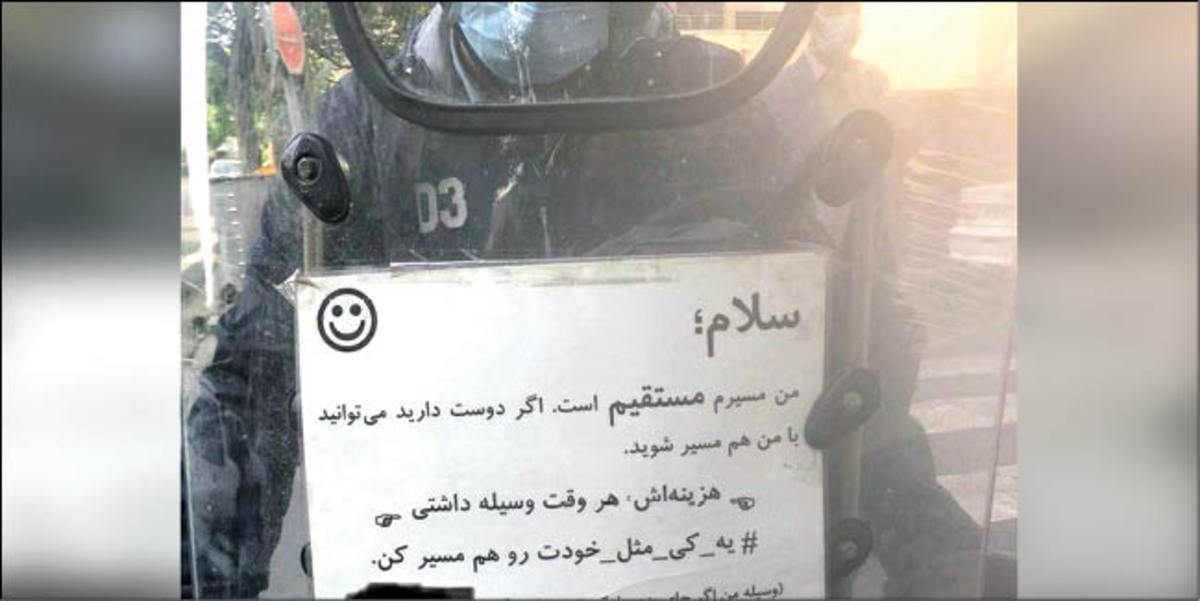 D3
سلام؛
من مسیرم مستقیم است. اگر دوست دارید می‌توانید
با من هم مسیر شوید.
هزینه‌اش، هر وقت وسیله داشتی
# یه_کی_مثل_خودت رو هم مسیر کن.
(وسیله من اگر جای